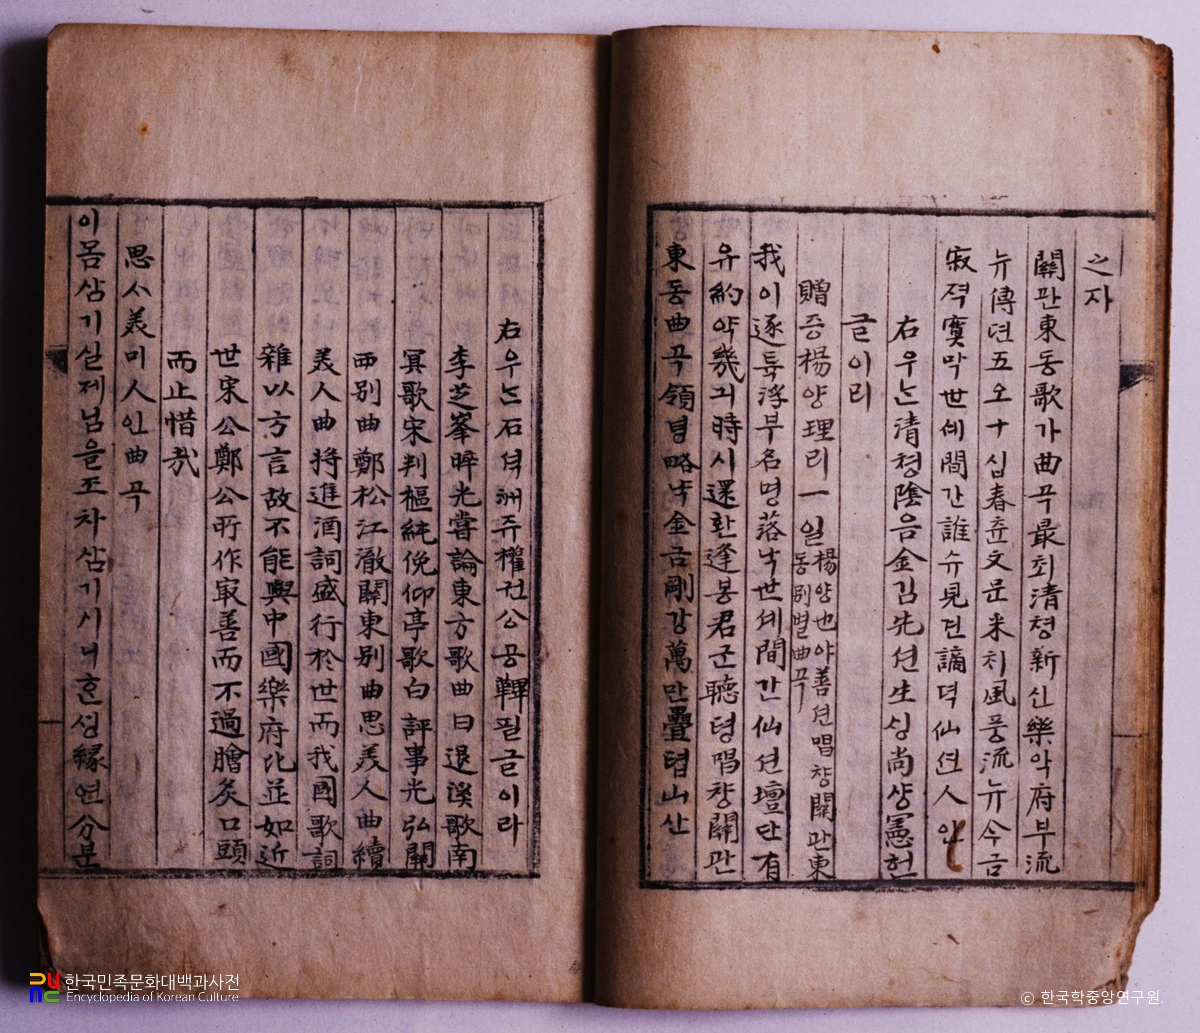 之자
關관東동歌가曲곡最최清쳥新신樂악府부流
뉴傳뎐五오十십春츈文문采치風풍流뉴今금
寂젹寞막世셰間간誰슈見견謫뎍仙션人인
右우는清쳥陰음金김先션生싱尚샹憲헌
글이리
贈증楊양理리一일楊양也야善션唱챵關관東동別별曲곡
我이逐튝浮부名명落낙世셰間간仙션壇단有
유約약幾긔時시還환逢봉君군聽텽唱챵關관
東동曲곡領녕略냑金금剛강萬만疊텹山산
右우는石셕洲쥬權권公공韠필글이라
李芝峯睟光嘗論東方歌曲曰退溪歌南
冥歌宋判樞純俛仰亭歌白評事光弘關
西別曲鄭松江澈關東別曲思美人曲續
美人曲將進酒詞盛行於世而我國歌詞
雜以方言故不能與中國樂府比並如近
世宋公鄭公所作最善而不過膾炙口頭
而止惜哉
思ᄉ美미人인曲곡
이몸삼기실제님을조차삼기시니ᄒᆞᆫ싱緣연分분
한국민족문화대백과사전
Encyclopedia of Korean Culture
ⓒ 한국학중앙연구원.